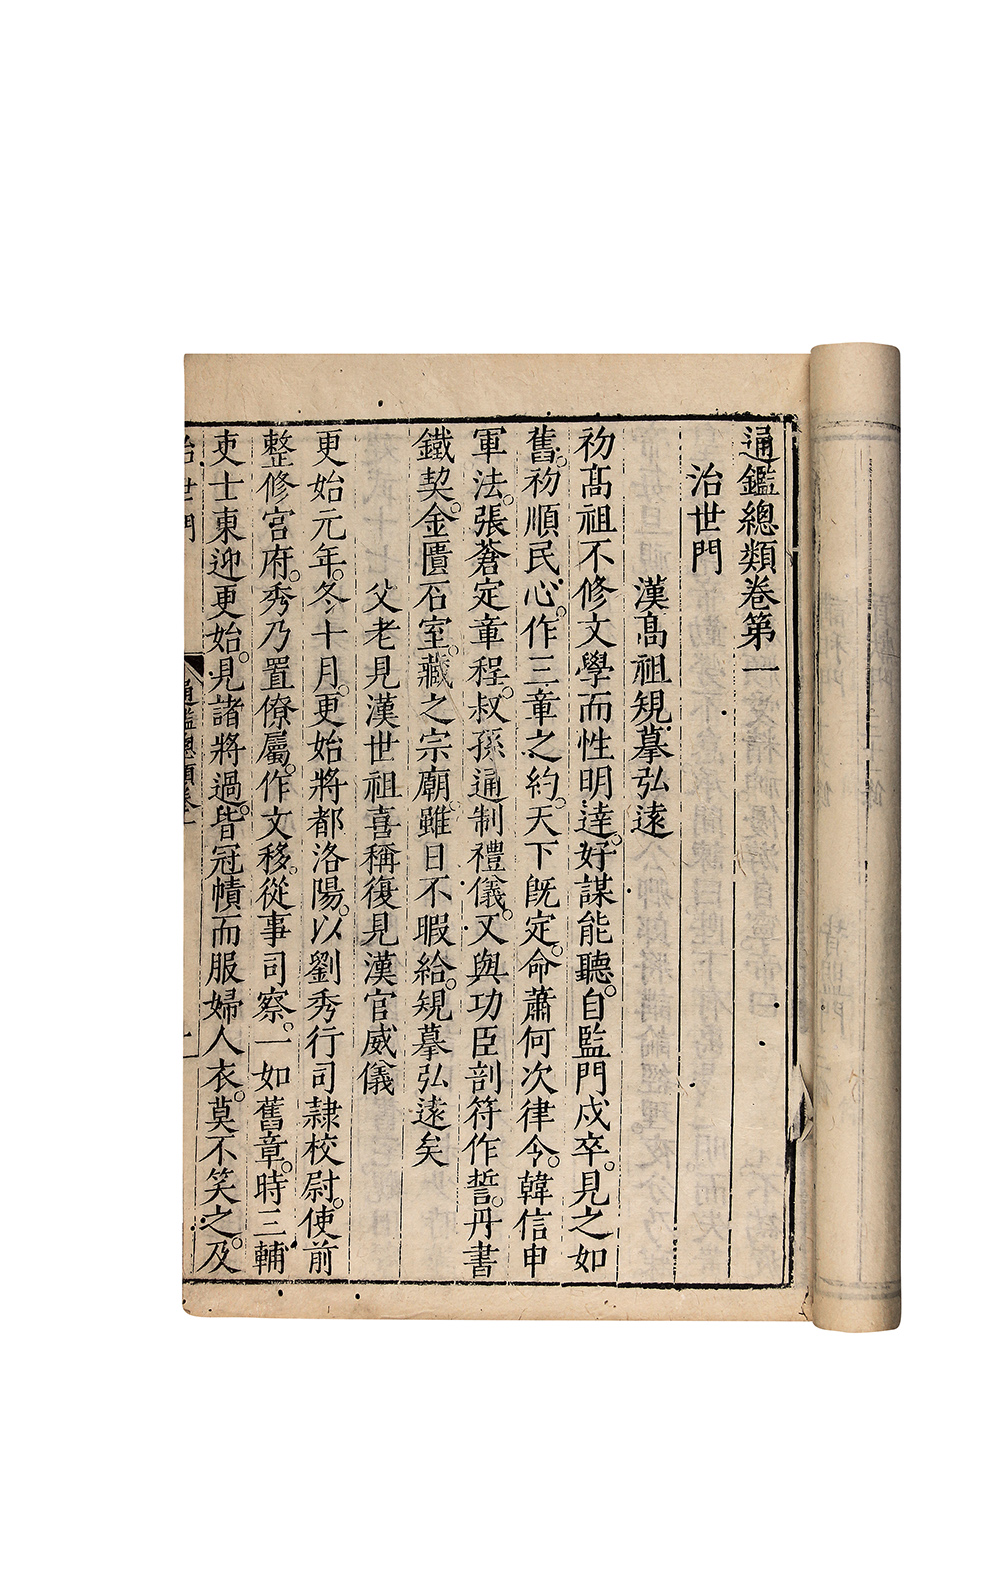 通鑑總類卷第一
治世門
漢高祖規摹弘遠
初高祖不修文學而性明達。好謀能聽。自監門戍卒。見之如
舊。初順民心。作三章之約。天下既定。命蕭何次律令。韓信申
軍法。張蒼定章程。叔孫通制禮儀。又與功臣剖符作誓。丹書
鐵契。金匱石室。藏之宗廟。雖日不暇給。規摹弘遠矣
父老見漢世祖喜稱復見漢官威儀
更始元年。冬十月。更始將都洛陽。以劉秀行司隸校尉。使前
整修宮府。秀乃置僚屬。作文移。從事司察。一如舊章。時三輔
吏士東迎更始。見諸將過。皆冠幘而服婦人衣。莫不笑之。及
治世門 通鑑總類卷一 一